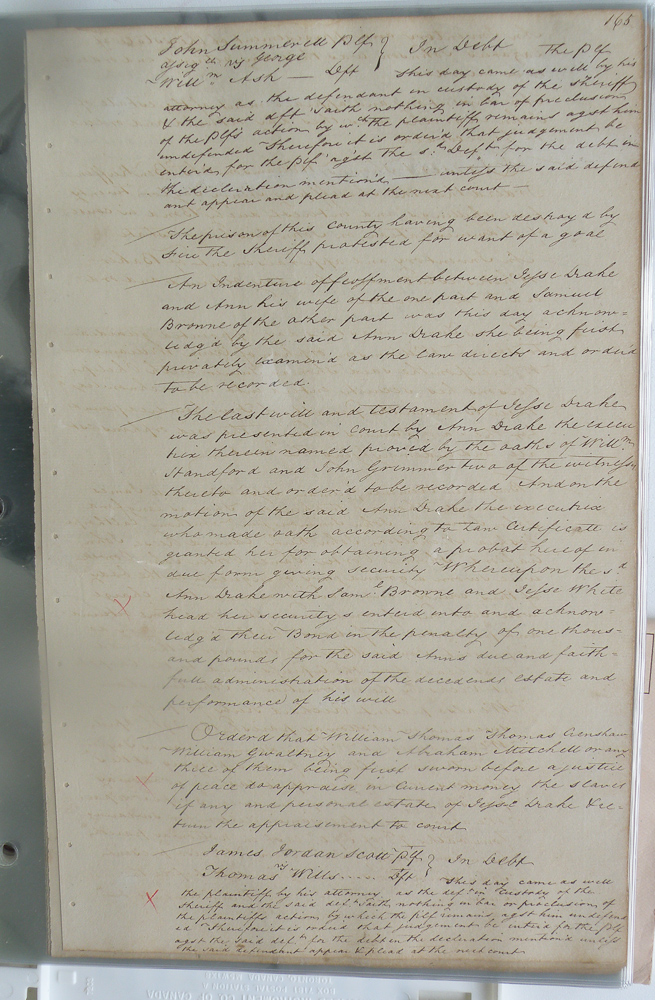 165
John Summerell Plf } In Debt The Plf
assigth vs George
Willm Ash — Dft This day came as well by his
attorney as the defendant in custody of the sheriff
& the said dft saith nothing in bar of preclusion
of the Plfs action by wch the plaintiff remains agst him
undefended Therefore it is order'd that judgement be
enter'd for the Plf agst the sd Deft for the debt in
the declaration mention'd — unless the said defend
ant appear and plead at the next court —
The prison of this County having been destroy'd by
Fire the Sheriff protested for want of a goal
An Indenture of Feoffment between Jesse Drake
and Ann his wife of the one part and Samuel
Browne of the other part was this day acknow=
ledg'd by the said Ann Drake she being first
privately examin'd as the law directs and order'd
to be recorded
The last will and testament of Jesse Drake
was presented in Court by Ann Drake the execu
trix therein named proved by the oaths of Willm
Standford and John Grimmer two of the witnesses
thereto and order'd to be recorded And on the
motion of the said Ann Drake the executrix
who made oath according to Law Certificate is
granted her for obtaining a probat hereof in
due form giving security Whereupon the sd
Ann Drake with Saml Browne and Jesse White
head her securitys enterd into and acknow=
ledg'd their Bond in the penalty of one thous=
and pounds for the said Anns due and faith=
full administration of the decedends estate and
performance of his will
Orderd that William Thomas Thomas Crenshaw
William Gwaltney and Abraham Mitchell or any
three of them being first sworn before a justice
of peace do appraise in Current money the slaves
if any and personal estate of Jesse Drake & re=
turn the appraisement to court
James Jordan Scott Plf } In Debt
Thomas Wills .... Dft This day came as well
the plaintiff by his attorney as the deft in Custody of the
Sheriff and the said deft saith nothing in bar or preclusion of
the plaintiffs action by which the plf remains agst him undefend
ed Therefore it is orderd that judgement be enterd for the Plf
agst the said deft for the debt in the declaration mention'd unless
the said defendant appear & plead at the next court